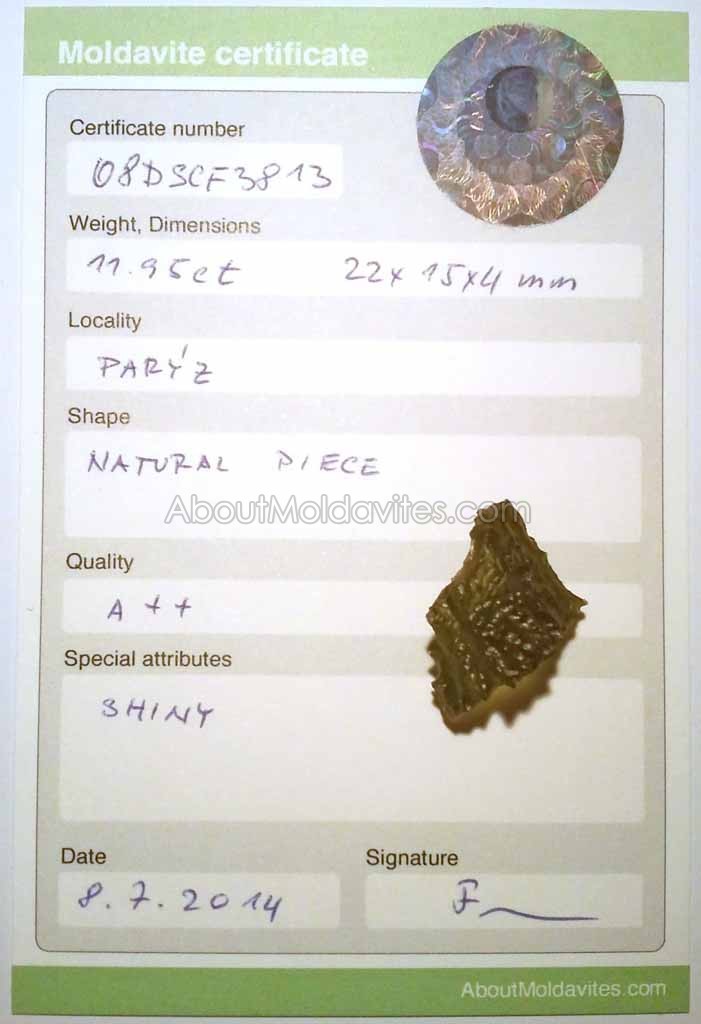 Moldavite certificate
Certificate number
08D3CF3813
Weight, Dimensions
11.95ct 22x15x4 mm
Locality
PARÝZ
Shape
NATURAL PIECE
AboutMoldavites.com
Quality
A++
Special attributes
SHINY
Date Signature
8.7.2014
AboutMoldavites.com